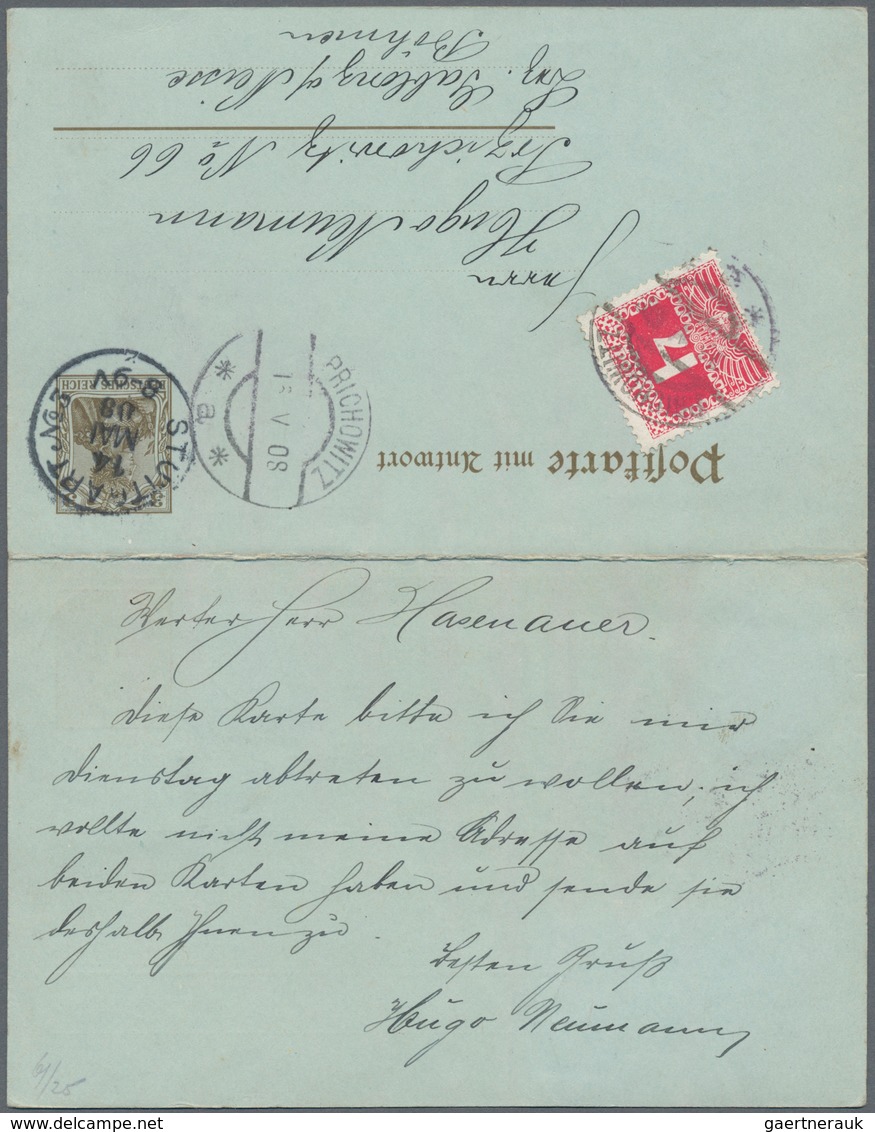 Postkarte mit Antwort
DEUTSCHES REICH
3 3
STUTTGART. No 3
14
MAI
08
8-9V
PRICHOWITZ
16 V 08
* a *
4
Herrn
Hugo Neumann
Przichowitz No 66
Bez. Gablonz a/ Neisse
Böhmen
Werter Herr Hasenauer.
Diese Karte bitte ich Sie mir
Dienstag abtreten zu wollen, ich
wollte nicht meine Adresse auf
beiden Karten haben und sende sie
deshalb Ihnen zu.
Besten Gruß
Hugo Neumann
61/25
gaertnerauk